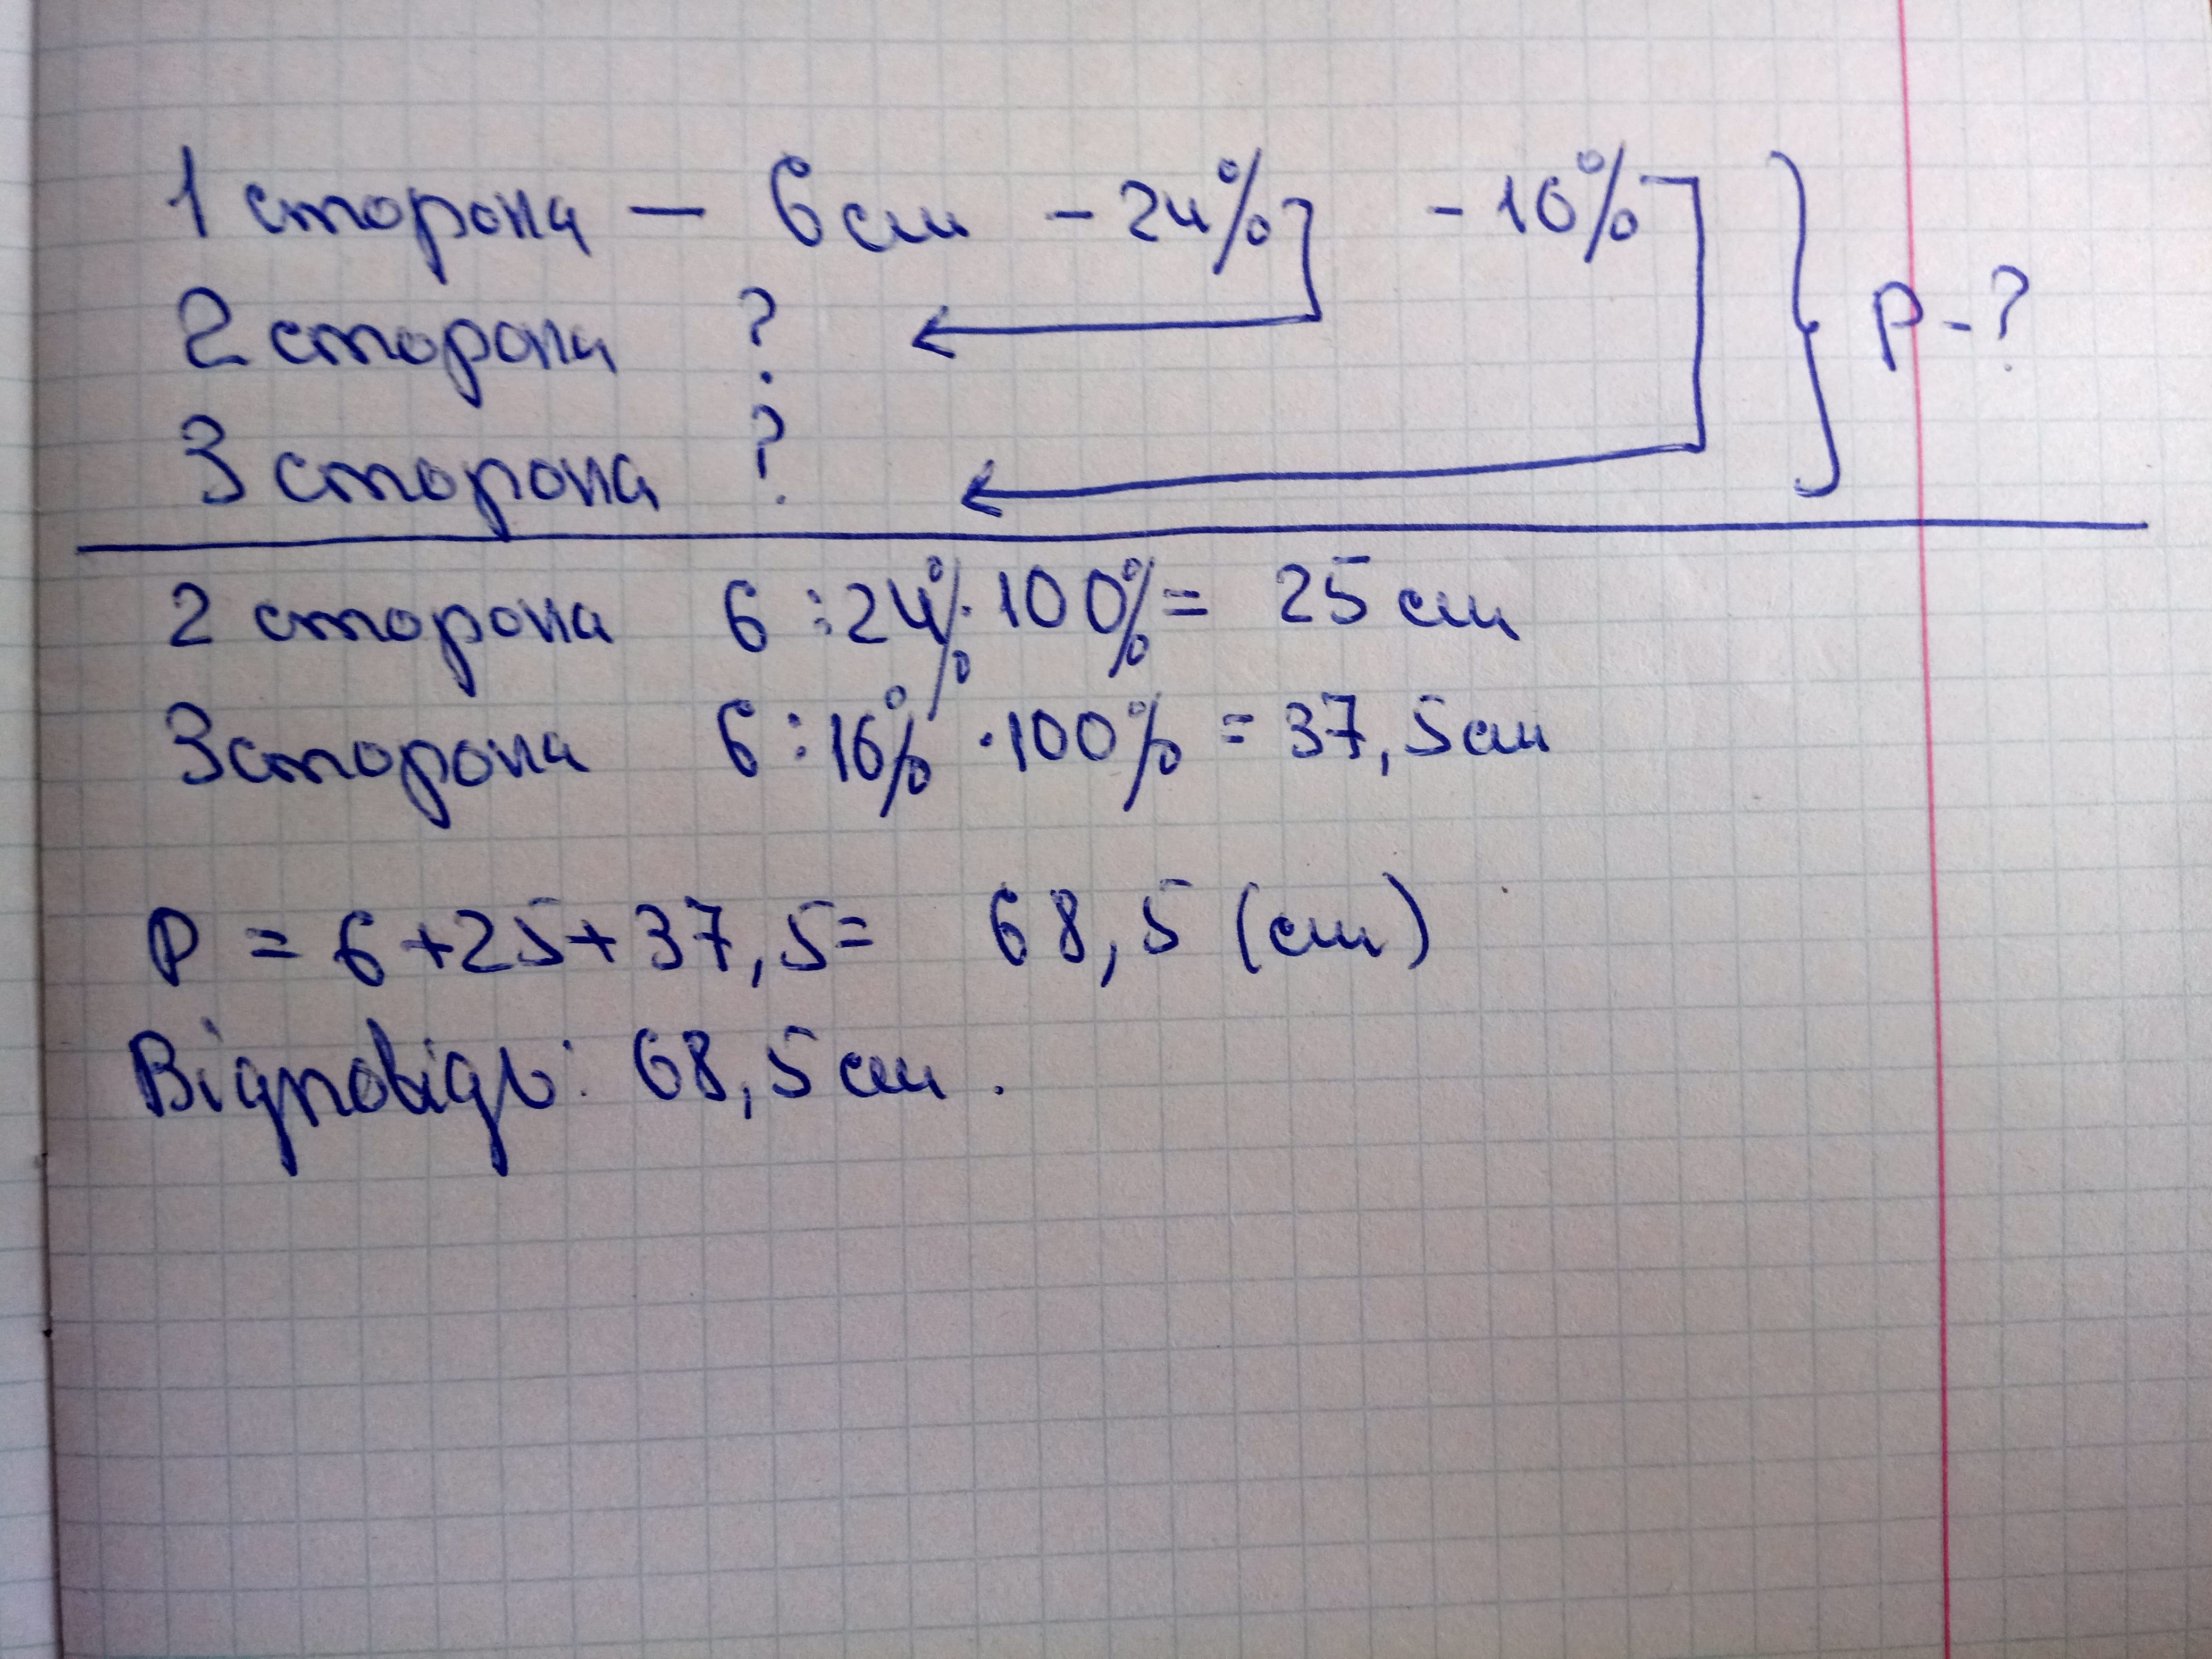 1 сторона — 6 см - 24% - 16%
2 сторона ?
3 сторона ?
P - ?
2 сторона 6 : 24% · 100% = 25 см
3 сторона 6 : 16% · 100% = 37,5 см
P = 6 + 25 + 37,5 = 68,5 (см)
Відповідь: 68,5 см.